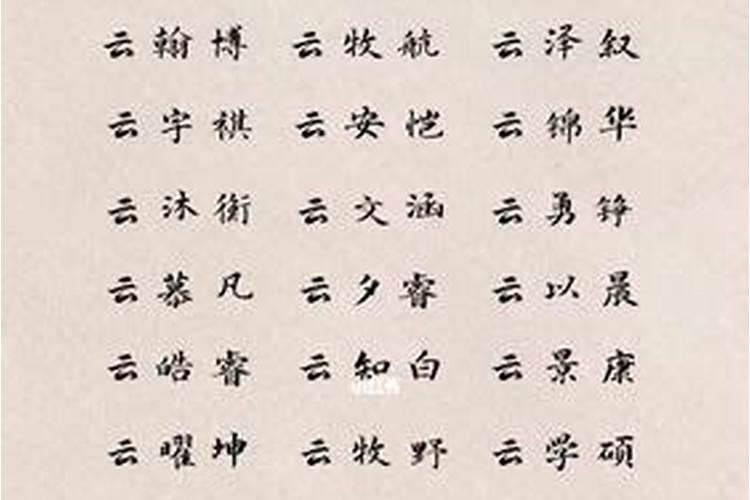 云翰博 云牧航 云泽叙
云宇祺 云安恺 云锦华
云沐衡 云文涵 云勇铮
云慕凡 云夕睿 云以晨
云皓睿 云知白 云景康
云曜坤 云牧野 云学硕